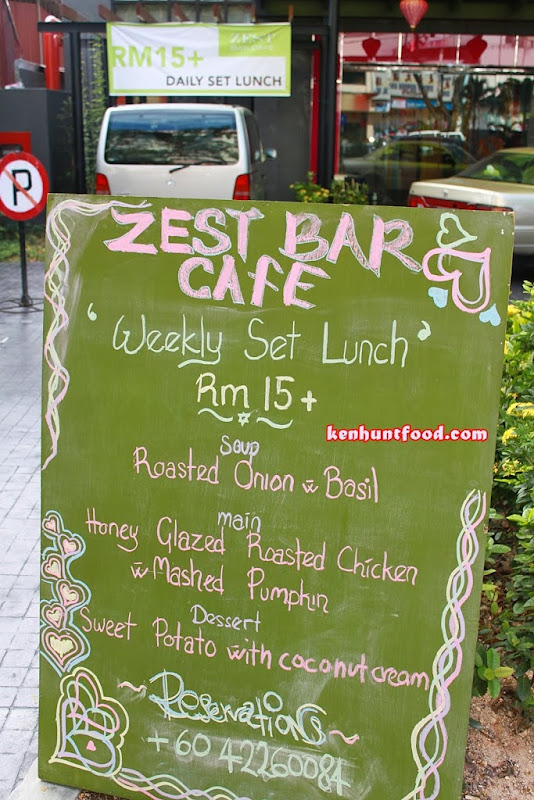 ZEST
RM15+
DAILY SET LUNCH
P
ZEST BAR
CAFE
'Weekly Set Lunch'
Rm 15+
kenhuntfood.com
Soup
Roasted Onion w Basil
main
Honey Glazed Roasted Chicken
w Mashed Pumpkin
Dessert
Sweet Potato with coconut cream
Reservations
+60 42260084